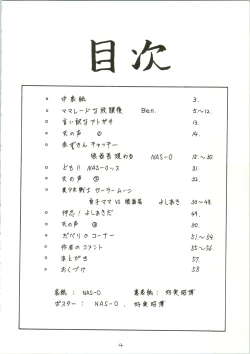 目次
○ 中表紙 3.
○ ママレードな放課後 Ben. 5〜12.
○ 言い訳なアトガキ 13.
○ 天の声 ① 14.
○ 赤ずきんチャッチャ
NAS-O 15.〜30.
○ ども!! NAS-Oっス 31.
○ 天の声 ② 32.
○ 美少女戦士セーラームーン
よしあき 33〜48.
○ 押忍! よしあきだ 49.
○ 天の声 ③ 50.
○ だべりのコーナー 51〜54.
○ 作者のコメント 55〜56.
○ あとがき 57.
○ おくづけ 58
表紙 : NAS-O 裏表紙 :
ポスター : NAS-O ,
4